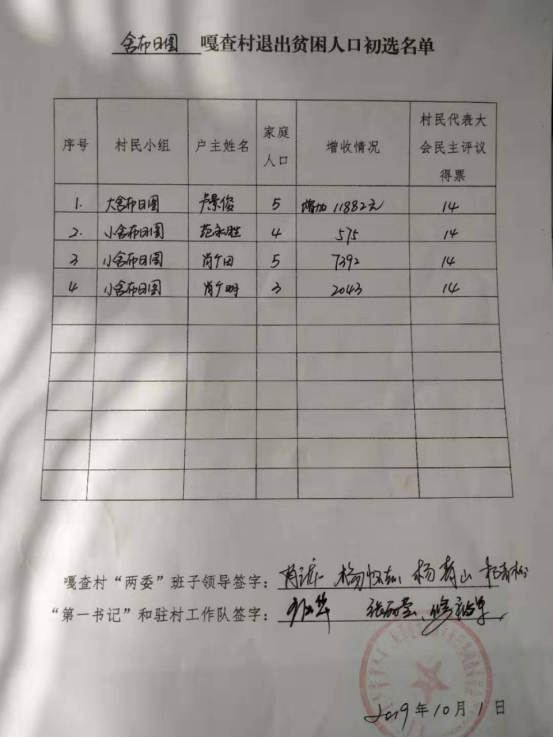 舍布日图 嘎查村退出贫困人口初选名单
序号 村民小组 户主姓名 家庭人口 增收情况 村民代表大会民主评议得票
1. 大舍布日图 卢景俊 5 增加11882元 14
2. 小舍布日图 范永胜 4 575 14
3 小舍布日图 肖个田 5 7392 14
4 小舍布日图 肖个明 3 2043 14
嘎查村“两委”班子领导签字:
“第一书记”和驻村工作队签字:
2019年10月1日